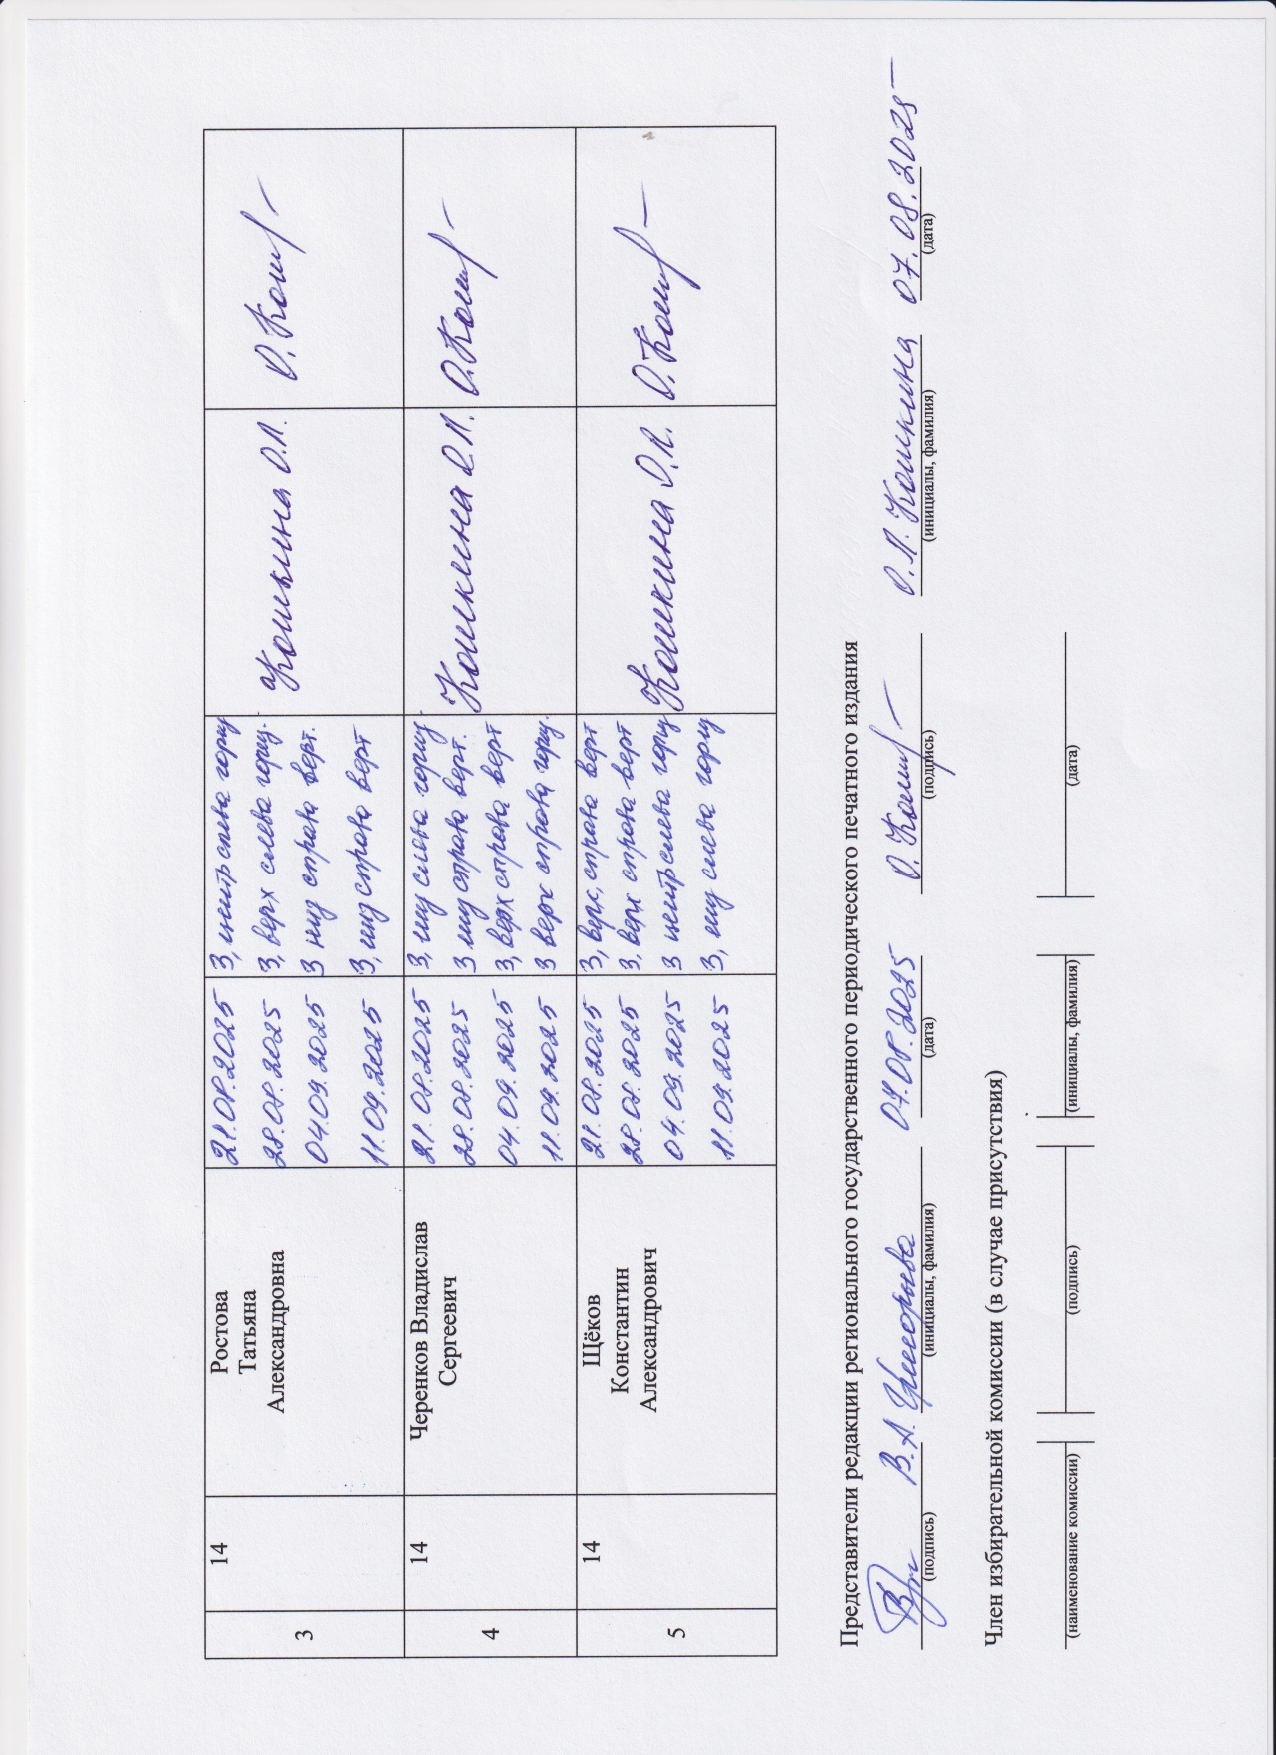 3
14
Ростова
Татьяна
Александровна
21.08.2025
28.08.2025
04.09.2025
11.09.2025
3, центр слева гориз
3, верх слева гориз.
3 низ справа верт.
3, низ справа верт
Кошкина О.Л.
О. Кош
4
14
Черенков Владислав
Сергеевич
21.08.2025
28.08.2025
04.09.2025
11.09.2025
3, низ слева гориз
3 низ справа верт.
3, верх справа верт
3 верх справа гориз.
Кошкина О.Л.
О. Кош
5
14
Щёков
Константин
Александрович
21.08.2025
28.08.2025
04.09.2025
11.09.2025
3, верх, справа верт
3, верх справа верт
3 центр слева гориз
3, низ слева гориз
Кошкина О.Л.
О. Кош
Представители редакции регионального государственного периодического печатного издания
В.А. Григорьева 07.08.2025 О. Кош О.Л. Кошкина 07.08.2025
(подпись) (инициалы, фамилия) (дата) (подпись) (инициалы, фамилия) (дата)
Член избирательной комиссии (в случае присутствия)
(наименование комиссии) (подпись) (инициалы, фамилия) (дата)